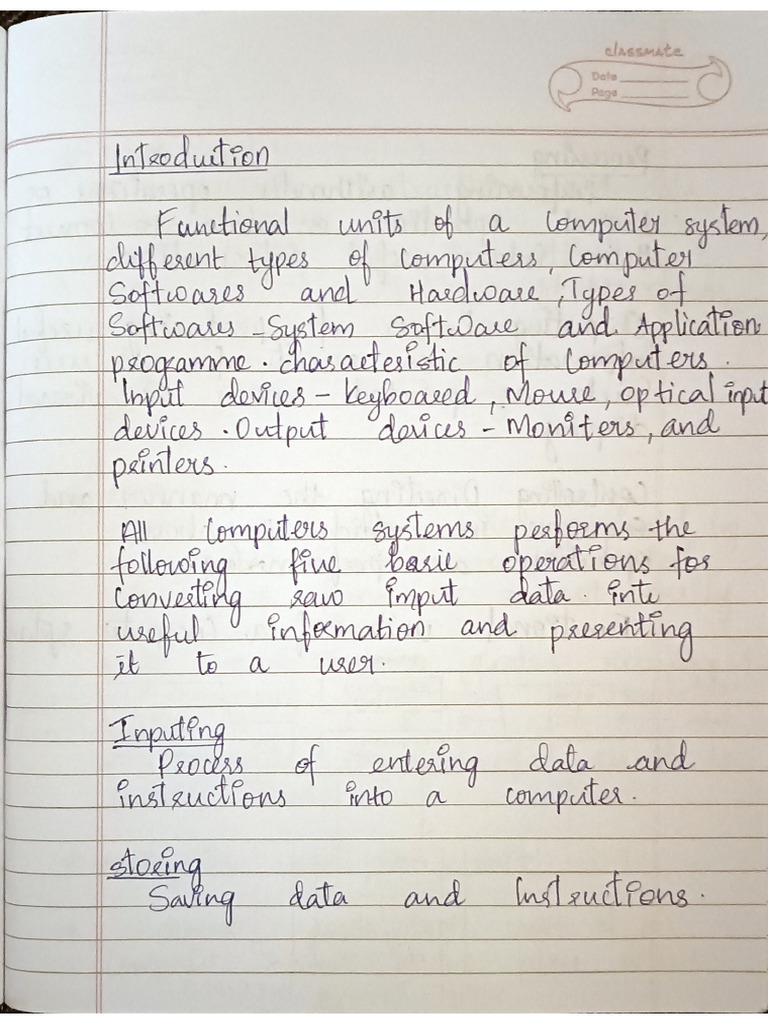 classmate
Date
Page
Introduction
Functional units of a Computer system,
different types of Computers, Computer
Softwares and Hardware, Types of
Softwares - System Software and Application
programme. characteristic of Computers.
Input devices - keyboard, Mouse, optical input
devices. Output devices - Moniters, and
printers.
All Computers systems performs the
following five basic operations for
Converting raw imput data. inte
useful information and presenting
it to a user.
Inputing
Process of entering data and
instructions into a computer.
storing
Saving data and Instructions.